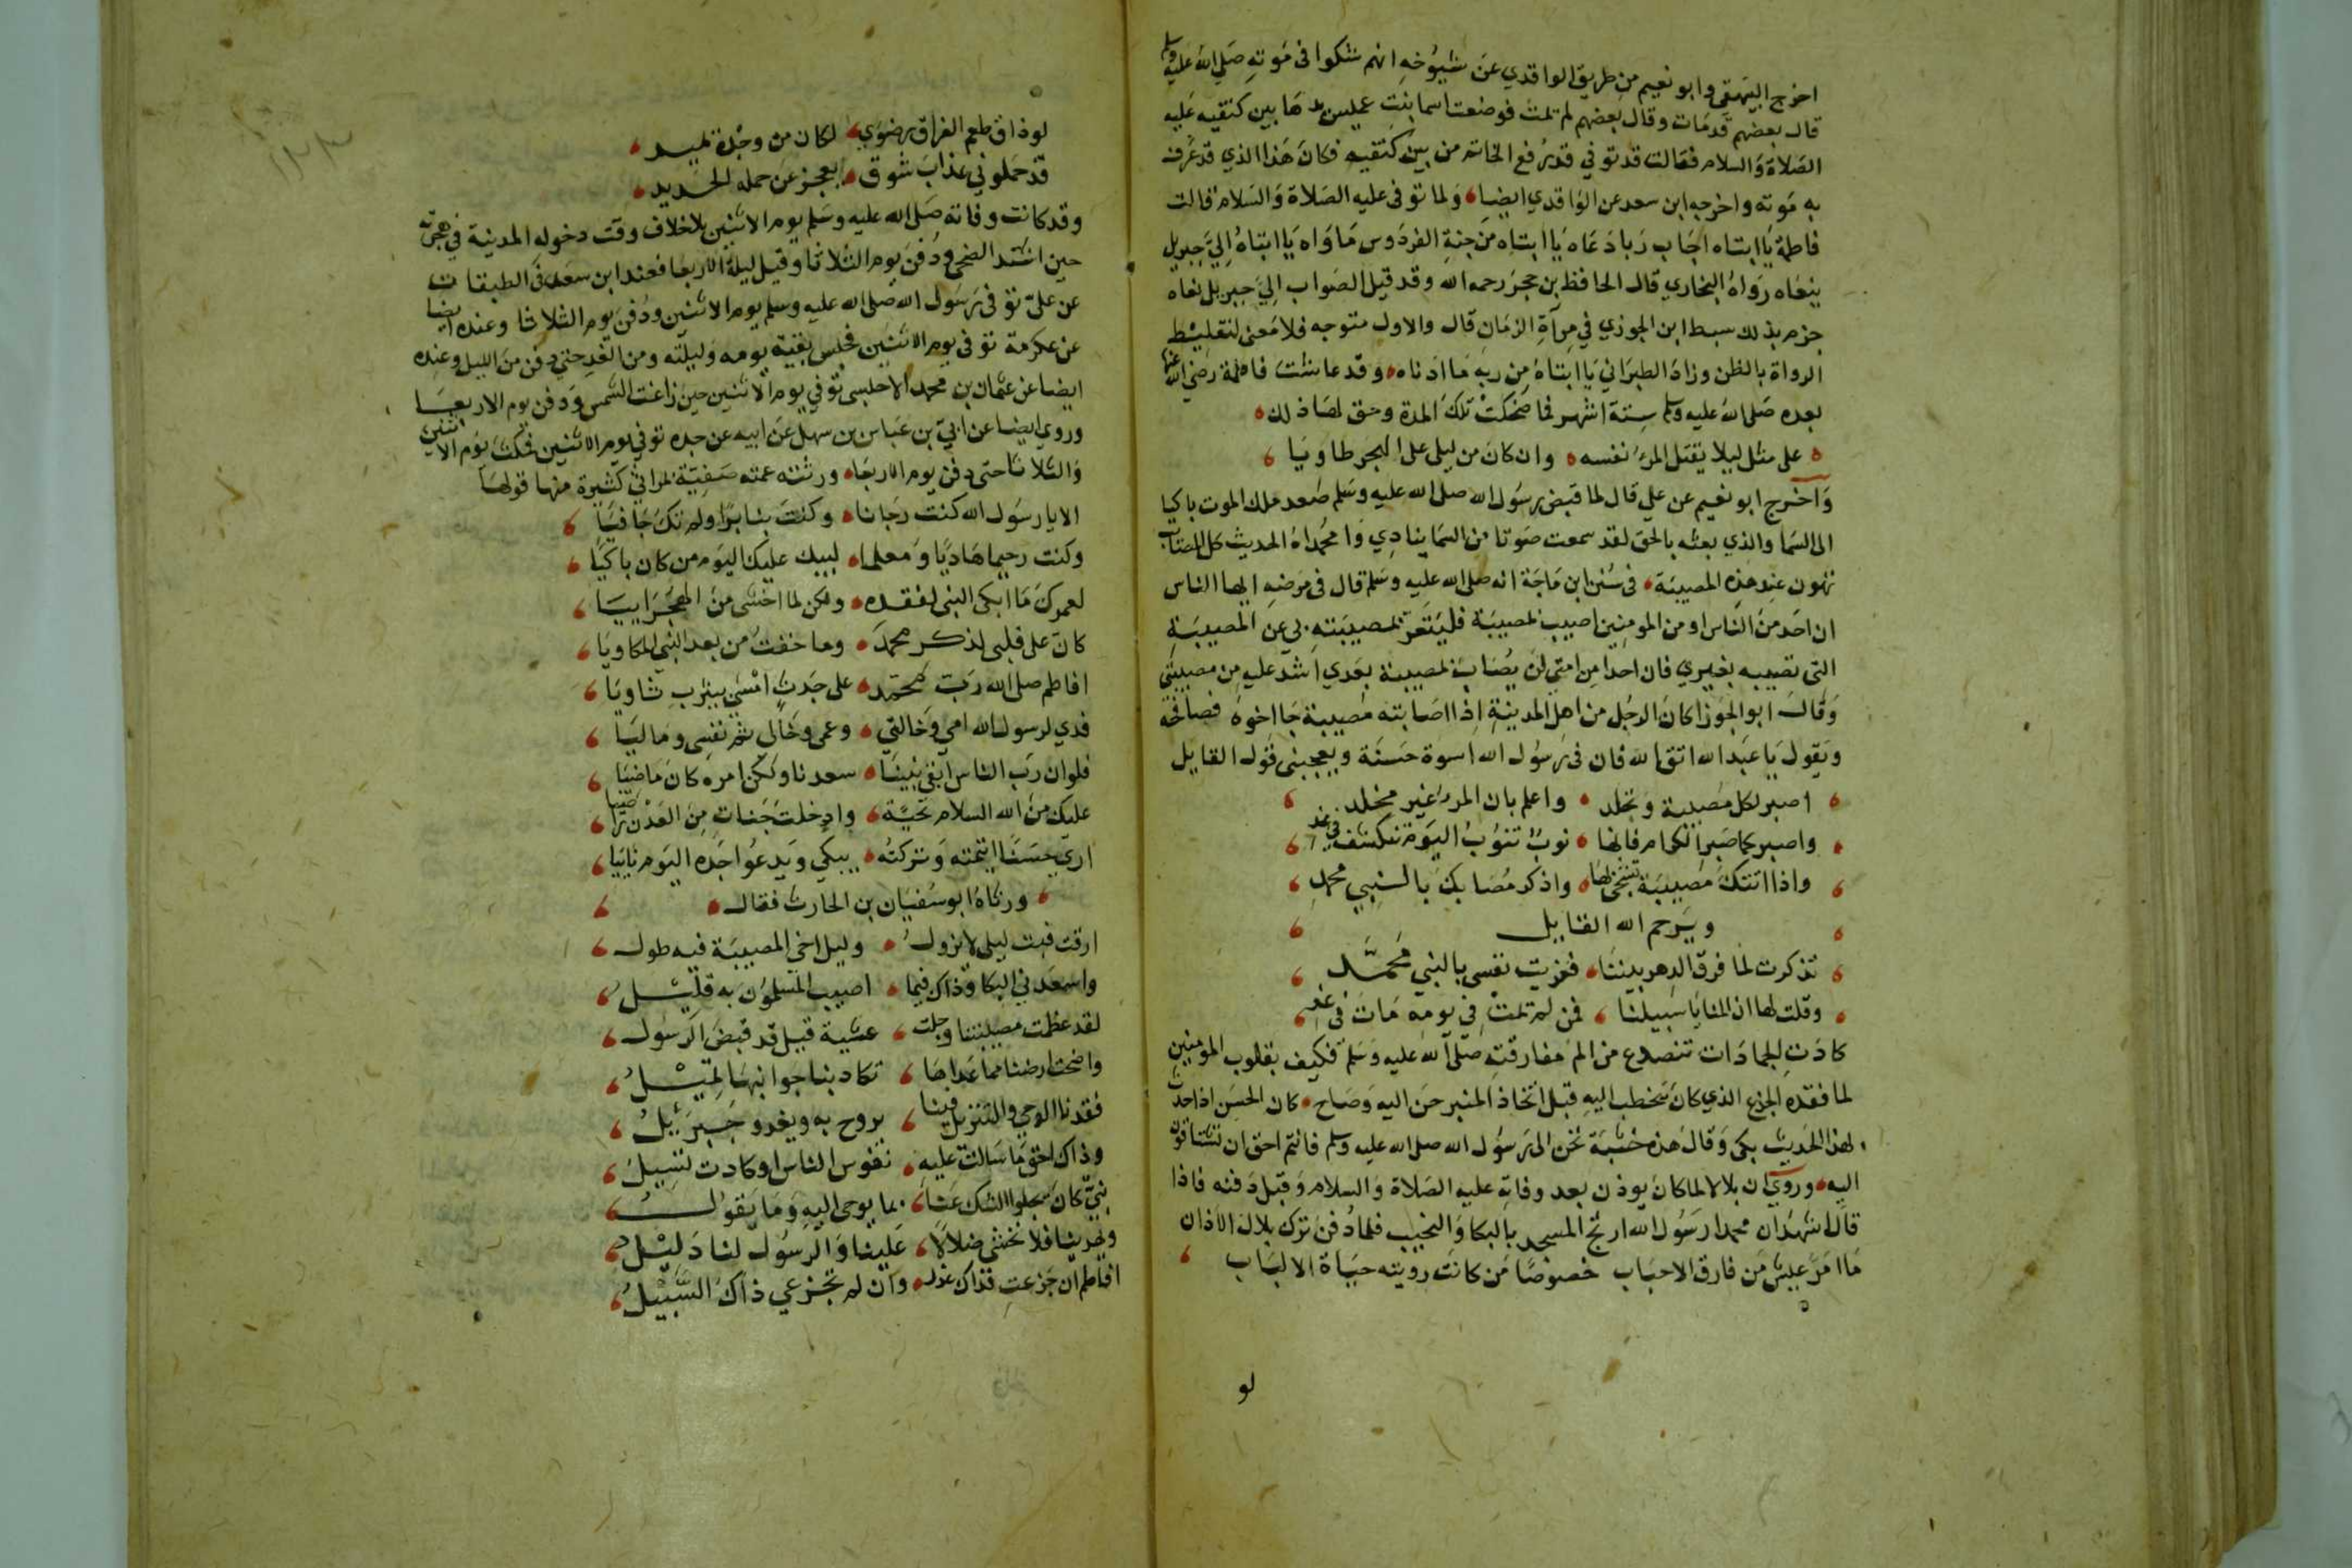 اخرج البيهقى وابو نعيم من طريق الواقدي عن شيوخه انهم شكوا فى موته صلى الله عليه وسلم
قال بعضهم قد مات وقال بعضهم لم يمت فوضعت اسما بنت عميس يدها بين كتفيه عليه
الصلاة والسلام فقالت قد توفي قد رفع الخاتم من بين كتفيه فكان هذا الذي قد عرف
به موته واخرجه ابن سعد عن الواقدي ايضا ولما توفى عليه الصلاة والسلام قالت
فاطمة يا ابتاه اجاب ربا دعاه يا ابتاه من جنة الفردوس ماواه يا ابتاه الي جبريل
ينعاه رواه البخاري قال الحافظ بن حجر رحمه الله وقد قيل الصواب الي جبريل نعاه
جزم بذلك سبط ابن الجوزي في مرآة الزمان قال والاول متوجه فلا معنى لتغليط
الرواة بالظن وزاد الطبراني يا ابتاه من ربه ما ادناه وقد عاشت فاطمة رضي الله عنها
بعده صلى الله عليه وسلم ستة اشهر فما ضحكت تلك المدة وحق لها ذلك
على مثل ليلى يقتل المرء نفسه وان كان من ليلى على الهجر طاويا
واخرج ابو نعيم عن علي قال لما قبض رسول الله صلى الله عليه وسلم صعد ملك الموت باكيا
الى السما والذي بعثه بالحق لقد سمعت صوتا من السما ينادي وا محمداه الحديث كل المصائب
تهون عند هذه المصيبة فى سنن ابن ماجة انه صلى الله عليه وسلم قال فى مرضه ايها الناس
ان احد من الناس او من المومنين اصيب بمصيبة فليتعز بمصيبته بي عن المصيبة
التى تصيبه بغيري فان احدا من امتي لن يصاب بمصيبة بعدي اشد عليه من مصيبتي
وقال ابو الجوزا كان الرجل من اهل المدينة اذا اصابته مصيبة جا اخوه فصافحه
ويقول يا عبد الله اتق الله فان فى رسول الله اسوة حسنة ويعجبنى قول القايل
اصبر لكل مصيبة وتجلد واعلم بان المرء غير مخلد
واصبر كما صبر الكرام فانها نوب تنوب اليوم تكشف في غد
واذا اتتك مصيبة تشجى لها واذكر مصابك بالنبي محمد
ويرحم الله القايل
تذكرت لما فرق الدهر بيننا فعزيت نفسى بالنبي محمد
وقلت لها ان المنايا سبيلنا فمن لم يمت في يومه مات فى غد
كادت الجمادات تتصدع من الم مفارقته صلى الله عليه وسلم فكيف بقلوب المومنين
لما فقده الجذع الذي كان يخطب اليه قبل اتخاذ المنبر حن اليه وصاح كان الحسن اذا حدث
لهذا الحديث بكى وقال هذه خشبة تحن الى رسول الله صلى الله عليه وسلم فانتم احق ان تشتاقوا
اليه وروي ان بلالا لما كان يوذن بعد وفاته عليه الصلاة والسلام وقبل دفنه فاذا
قال اشهد ان محمدا رسول الله ارتج المسجد بالبكا والنحيب فلما دفن ترك بلال الاذان
ما امر عيش من فارق الاحباب خصوصا من كانت رويته حياة الالباب
لو
لو ذاق طعم الفراق رضوي لكان من وجده يميد
قد حملوني عذاب شوق يعجز عن حمله الحديد
وقد كانت وفاته صلى الله عليه وسلم يوم الاثنين بلا خلاف وقت دخوله المدينة في هجرته
حين اشتد الضحى ودفن يوم الثلاثا وقيل ليلة الاربعا فعند ابن سعد فى الطبقات
عن علي توفى رسول الله صلى الله عليه وسلم يوم الاثنين ودفن يوم الثلاثا وعنده ايضا
عن عكرمة توفى يوم الاثنين فجلس بقية يومه وليلته ومن الغد حتى دفن من الليل وعنده
ايضا عن عثمان بن محمد الاخلسى توفي يوم الاثنين حين زاغت الشمس ودفن يوم الاربعا
وروي ايضا عن ابي بن عباس بن سهل عن ابيه عن جده توفي يوم الاثنين فمكث يوم الاثنين
والثلاثا حتى دفن يوم الاربعا ورثته عمته صفية بمراثي كثيرة منها قولها
الا يا رسول الله كنت رجانا وكنت بنا برا ولم تك جافيا
وكنت رحيما هاديا ومعلما لبيك عليك اليوم من كان باكيا
لعمرك ما ابكى النبى لفقده ولكن لما اخشى من الهجر اتيا
كان على قلبى لذكر محمد وما خفت من بعد النبي المكاويا
افاطم صلى الله رب محمد على جدث امسى بيثرب ثاويا
فدي لرسول الله امي وخالتي وعمى وخالي ثم نفسى وماليا
فلو ان رب الناس ابقى نبينا سعدنا ولكن امره كان ماضيا
عليك من الله السلام تحية وادخلت جنات من العدن راضيا
اري حسنا ايتمته وتركته يبكي ويدعو جده اليوم نائيا
ورثاه ابو سفيان بن الحارث فقال
ارقت فبت ليلى لا يزول وليل اخي المصيبة فيه طول
واسعدني البكا وذاك فيما اصيب المسلمون به قليل
لقد عظمت مصيبتنا وجلت عشية قيل قد قبض الرسول
واضحت ارضنا مما عداها تكاد بنا جوانبها تميل
فقدنا الوحي والتنزيل فينا يروح به ويغدو جبرئيل
وذاك احق ما سالت عليه نفوس الناس او كادت تسيل
نبي كان يجلوا الشك عنا بما يوحى اليه وما يقول
ويهدينا فلا نخشى ضلالا علينا والرسول لنا دليل
افاطم ان جزعت فذاك عذر وان لم تجزعي ذاك السبيل